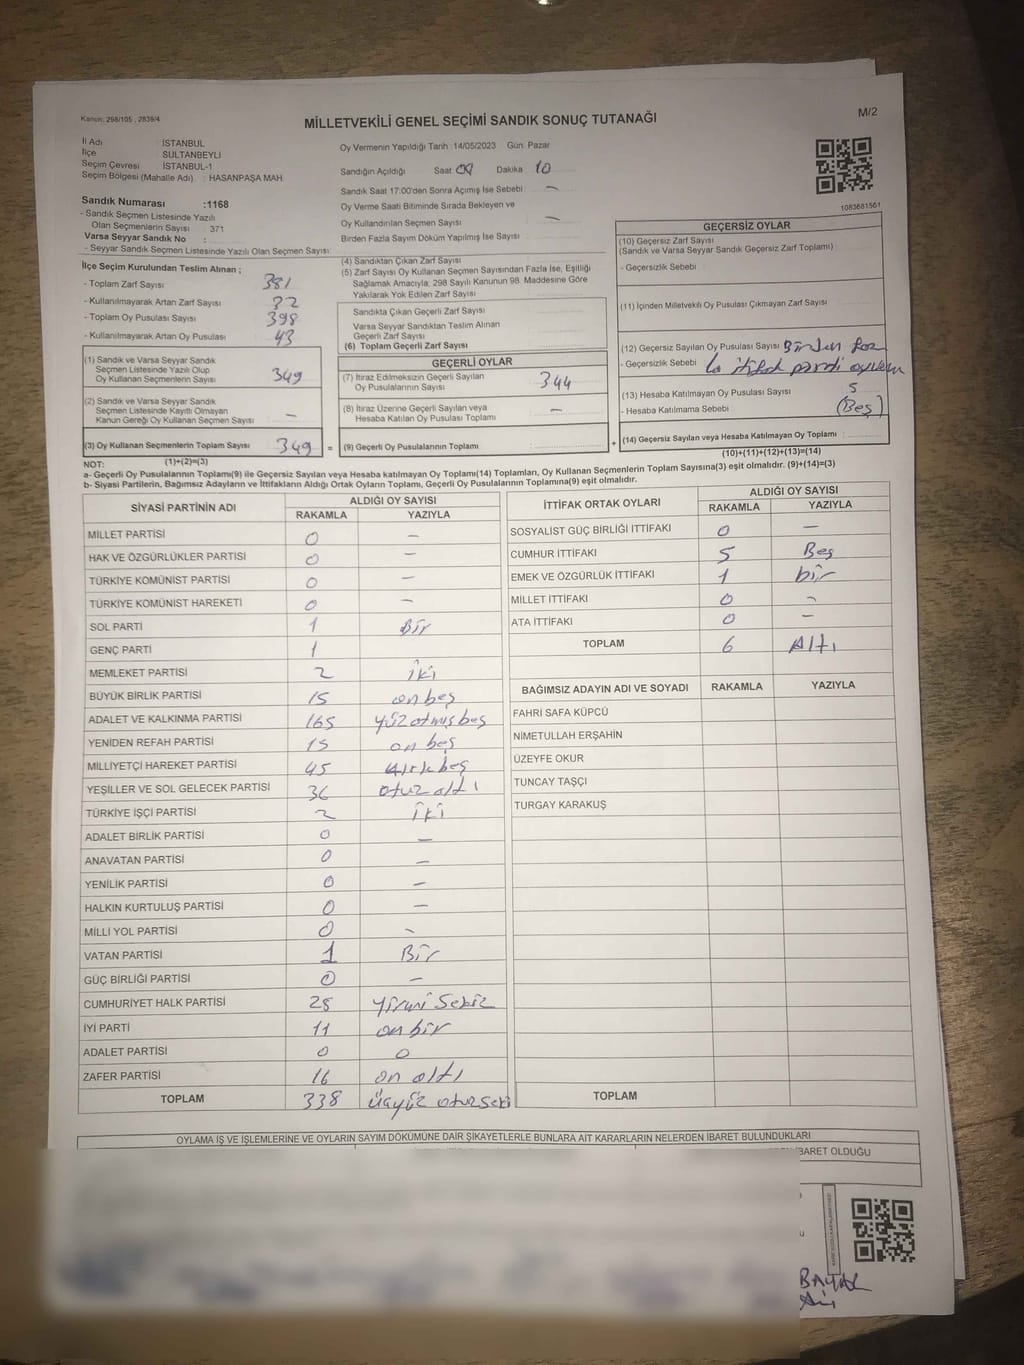 Kanun: 298/105 , 2839/4
M/2
MİLLETVEKİLİ GENEL SEÇİMİ SANDIK SONUÇ TUTANAĞI
İl Adı : İSTANBUL
İlçe : SULTANBEYLİ
Seçim Çevresi : İSTANBUL-1
Seçim Bölgesi (Mahalle Adı) : HASANPAŞA MAH
Sandık Numarası :1168
- Sandık Seçmen Listesinde Yazılı
Olan Seçmenlerin Sayısı : 371
Varsa Seyyar Sandık No :
- Seyyar Sandık Seçmen Listesinde Yazılı Olan Seçmen Sayısı:
Oy Vermenin Yapıldığı Tarih :14/05/2023 Gün: Pazar
Sandığın Açıldığı Saat Dakika 10
Sandık Saat 17:00'den Sonra Açımış İse Sebebi : —
Oy Verme Saati Bitiminde Sırada Bekleyen ve
Oy Kullandırılan Seçmen Sayısı : —
Birden Fazla Sayım Döküm Yapılmış İse Sayısı :
1083681561
İlçe Seçim Kurulundan Teslim Alınan ;
- Toplam Zarf Sayısı : 381
- Kullanılmayarak Artan Zarf Sayısı : 32
- Toplam Oy Pusulası Sayısı : 398
- Kullanılmayarak Artan Oy Pusulası : 43
(1) Sandık ve Varsa Seyyar Sandık
Seçmen Listesinde Yazılı Olup
Oy Kullanan Seçmenlerin Sayısı : 349
(2) Sandık ve Varsa Seyyar Sandık
Seçmen Listesinde Kayıtlı Olmayan
Kanun Gereği Oy Kullanan Seçmen Sayısı : —
(3) Oy Kullanan Seçmenlerin Toplam Sayısı : 349 =
(1)+(2)=(3)
(4) Sandıktan Çıkan Zarf Sayısı :
(5) Zarf Sayısı Oy Kullanan Seçmen Sayısından Fazla İse, Eşitliği
Sağlamak Amacıyla; 298 Sayılı Kanunun 98. Maddesine Göre
Yakılarak Yok Edilen Zarf Sayısı :
Sandıkta Çıkan Geçerli Zarf Sayısı :
Varsa Seyyar Sandıktan Teslim Alınan
Geçerli Zarf Sayısı :
(6) Toplam Geçerli Zarf Sayısı :
GEÇERLİ OYLAR
(7) İtiraz Edilmeksizin Geçerli Sayılan
Oy Pusulalarının Sayısı : 344
(8) İtiraz Üzerine Geçerli Sayılan veya
Hesaba Katılan Oy Pusulası Toplamı : —
(9) Geçerli Oy Pusulalarının Toplamı : +
GEÇERSİZ OYLAR
(10) Geçersiz Zarf Sayısı :
(Sandık ve Varsa Seyyar Sandık Geçersiz Zarf Toplamı)
- Geçersizlik Sebebi :
(11) İçinden Milletvekili Oy Pusulası Çıkmayan Zarf Sayısı :
(12) Geçersiz Sayılan Oy Pusulası Sayısı : Birden faz
- Geçersizlik Sebebi : la ittifak
(13) Hesaba Katılmayan Oy Pusulası Sayısı : 5
- Hesaba Katılmama Sebebi : (Beş)
(14) Geçersiz Sayılan veya Hesaba Katılmayan Oy Toplamı :
(10)+(11)+(12)+(13)=(14)
NOT:
a- Geçerli Oy Pusulalarının Toplamı(9) ile Geçersiz Sayılan veya Hesaba katılmayan Oy Toplamı(14) Toplamları, Oy Kullanan Seçmenlerin Toplam Sayısına(3) eşit olmalıdır. (9)+(14)=(3)
b- Siyasi Partilerin, Bağımsız Adayların ve İttifakların Aldığı Ortak Oyların Toplamı, Geçerli Oy Pusulalarının Toplamına(9) eşit olmalıdır.
SİYASİ PARTİNİN ADI ALDIĞI OY SAYISI
RAKAMLA YAZIYLA
MİLLET PARTİSİ 0 —
HAK VE ÖZGÜRLÜKLER PARTİSİ 0 —
TÜRKİYE KOMÜNİST PARTİSİ 0 —
TÜRKİYE KOMÜNİST HAREKETİ 0 —
SOL PARTİ 1 Bir
GENÇ PARTİ 1
MEMLEKET PARTİSİ 2 iki
BÜYÜK BİRLİK PARTİSİ 15 on beş
ADALET VE KALKINMA PARTİSİ 165 yüzotmuşbeş
YENİDEN REFAH PARTİSİ 15 on beş
MİLLİYETÇİ HAREKET PARTİSİ 45 kırkbeş
YEŞİLLER VE SOL GELECEK PARTİSİ 36 otuz altı
TÜRKİYE İŞÇİ PARTİSİ 2 iki
ADALET BİRLİK PARTİSİ 0 —
ANAVATAN PARTİSİ 0 —
YENİLİK PARTİSİ 0 —
HALKIN KURTULUŞ PARTİSİ 0 —
MİLLİ YOL PARTİSİ 0 —
VATAN PARTİSİ 1 Bir
GÜÇ BİRLİĞİ PARTİSİ 0 —
CUMHURİYET HALK PARTİSİ 28 yirmi sekiz
İYİ PARTİ 11 on bir
ADALET PARTİSİ 0 0
ZAFER PARTİSİ 16 on altı
TOPLAM 338 üçyüz otuzseki
İTTİFAK ORTAK OYLARI ALDIĞI OY SAYISI
RAKAMLA YAZIYLA
SOSYALİST GÜÇ BİRLİĞİ İTTİFAKI 0 —
CUMHUR İTTİFAKI 5 Beş
EMEK VE ÖZGÜRLÜK İTTİFAKI 1 bir
MİLLET İTTİFAKI 0 —
ATA İTTİFAKI 0 —
TOPLAM 6 Altı
BAĞIMSIZ ADAYIN ADI VE SOYADI RAKAMLA YAZIYLA
FAHRİ SAFA KÜPCÜ
NİMETULLAH ERŞAHİN
ÜZEYFE OKUR
TUNCAY TAŞÇI
TURGAY KARAKUŞ
TOPLAM
OYLAMA İŞ VE İŞLEMLERİNE VE OYLARIN SAYIM DÖKÜMÜNE DAİR ŞİKAYETLERLE BUNLARA AİT KARARLARIN NELERDEN İBARET BULUNDUKLARI
BARET OLDUĞU